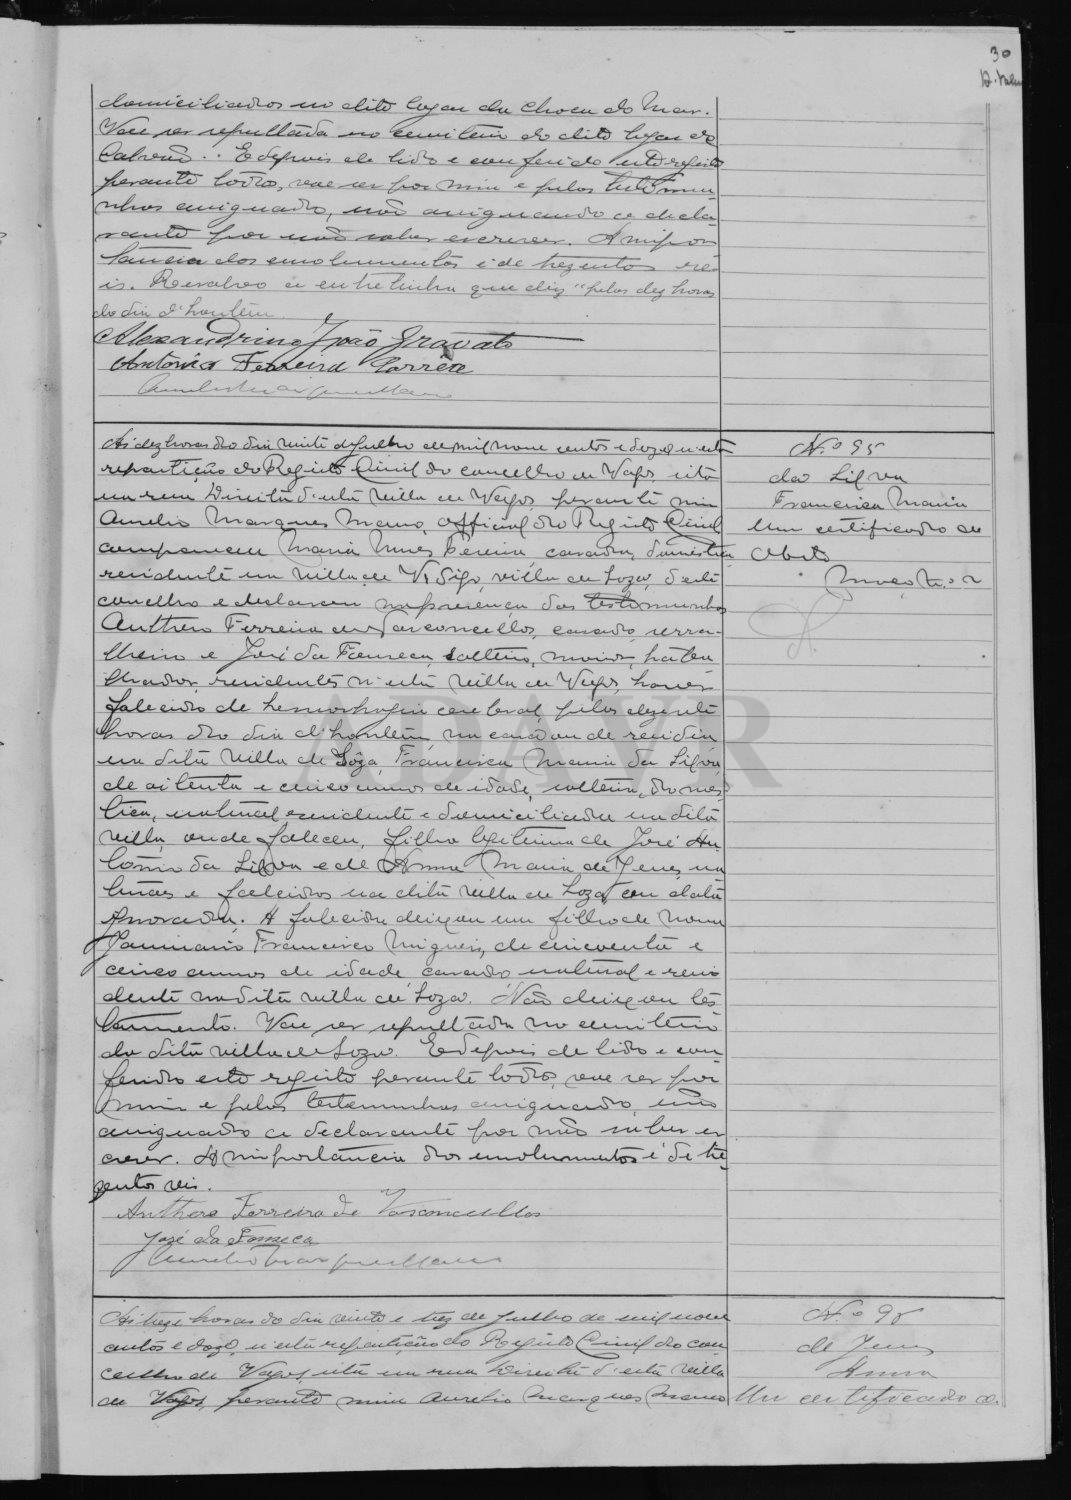 30
domiciliados no dito logar da Choca do Mar.
Vae ser sepultada no cemiterio do dito logar do
Calvão. E depois de lido e conferido este registo
perante todos, vae ser por mim e pelas testemu-
nhas assignado, não assignando a decla-
rante por não saber escrever. A impor-
tancia dos emolumentos é de trezentos re-
is. Resalvo a entrelinha que diz "pelas dez horas
do dia d'hontem.
Alexandrino João Gravato
Antonio Ferreira Corrêa
Aurelio Marques Mano
Ás dez horas do dia vinte de Julho de mil nove centos e doze, n'esta
repartição do Registo Civil do concelho de Vagos, sita
na rua Direita d'esta villa de Vagos, perante mim
Aurelio Marques Mano, official do Registo Civil
compareceu Maria Nunes Pereira casada, domestica
residente na villa de villa de Soza, d'este
concelho e declarou na presença das testemunhas
Anthero Ferreira de Vasconcellos, casado, serra-
lheiro e José da Fonseca, solteiro, maior, traba
lhador, residentes n'esta villa de Vagos, haver
falecido de hemorrhagia cerebral, pelas dezesete
horas do dia d'hontem, na casa onde residia
na dita villa de Sôza, Francisca Maria da Silva,
de oitenta e cinco annos de idade, solteira, domes-
tica, natural, residente e domiciliada na dita
villa, onde faleceu, filha legitima de José An-
tonio da Silva e de Anna Maria de Jesus, na
turaes e falecidos na dita villa de Soza, em data
ignorada. A falecida deixou um filho de nome
Januario Francisco Migueis, de cincoenta e
cinco annos de idade, casado, natural e resi
dente na dita villa de Soza. Não deixou tes
tamento. Vae ser sepultada no cemiterio
da dita villa de Soza. E depois de lido e con
ferido este registo perante todos, vae ser por
mim e pelas testemunhas assignado, não
assignando a declarante por não saber es
crever. A importancia dos emolumentos é de tre
zentos reis.
Anthero Ferreira de Vasconcellos
José da Fonseca
Aurelio Marques Mano
N.º 95
da Silva
Francisca Maria
Um certificado de
obito
Maço N.º 2
Ás treze horas do dia vinte e trez de Julho de mil nove
centos e doze, n'esta repartição do Registo Civil do con
celho de Vagos, sita na rua Direita d'esta villa
de Vagos, perante mim Aurelio Marques Mano
N.º 96
de Jesus
Anna
Um certificado de
ADAVR